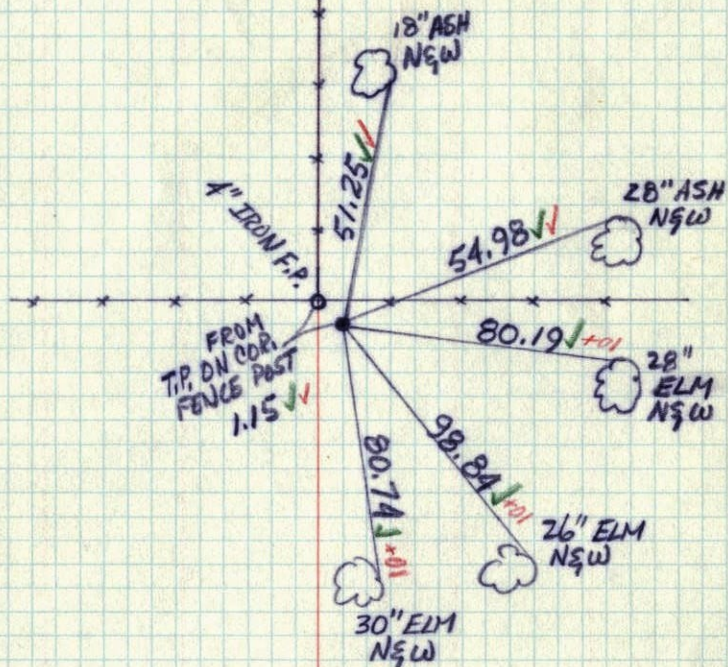 18" ASH
N&W
51.25 ✓✓
4" IRON F.P.
28" ASH
N&W
54.98 ✓✓
FROM
T.P. ON COR.
FENCE POST
1.15 ✓✓
80.19 ✓ +01
28"
ELM
N&W
98.84 ✓ +01
80.74 ✓ +01
26" ELM
N&W
30" ELM
N&W